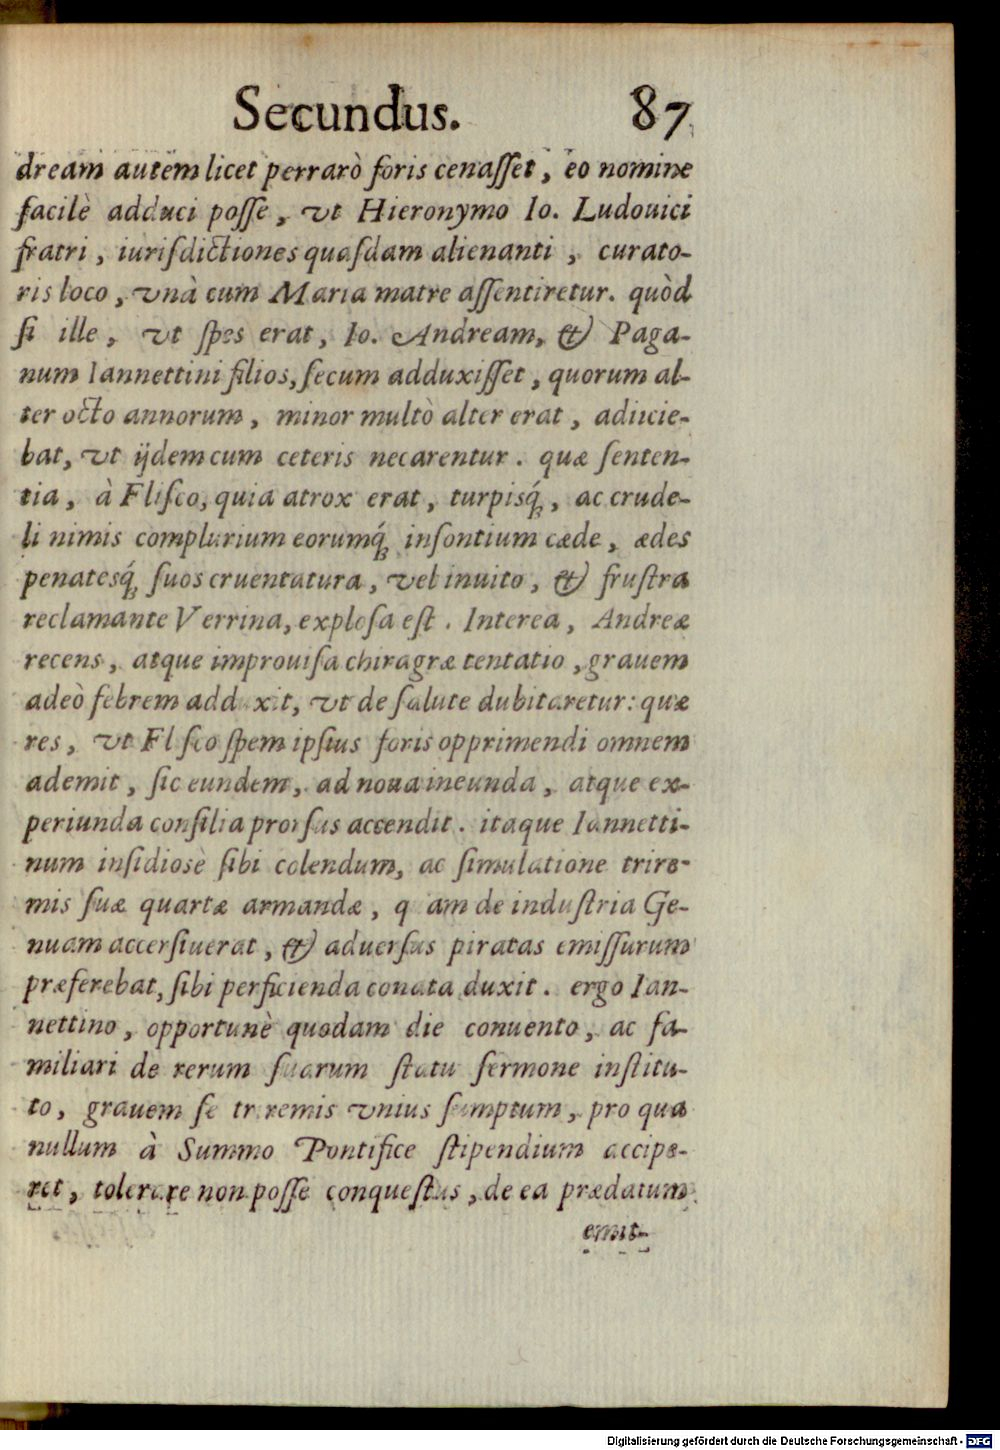 Secundus. 87
dream autem licet perrarò foris cenaſſet, eo nomine
facilè adduci poſſe, vt Hieronymo Io. Ludouici
fratri, iuriſdictiones quaſdam alienanti, curato-
ris loco, vnà cum Maria matre aſſentiretur. quòd
ſi ille, vt ſpes erat, Io. Andream, & Paga-
num Iannettini filios, ſecum adduxiſſet, quorum al-
ter octo annorum, minor multò alter erat, adiicie-
bat, vt ijdem cum ceteris necarentur. quæ ſenten-
tia, à Fliſco, quia atrox erat, turpisq́;, ac crude-
li nimis complurium eorumq́; inſontium cæde, ædes
penatesq́; ſuos cruentatura, vel inuito, & fruſtra
reclamante Verrina, exploſa eſt. Interea, Andreæ
recens, atque improuiſa chiragræ tentatio, grauem
adeò febrem adduxit, vt de ſalute dubitaretur: quæ
res, vt Fliſco ſpem ipſius foris opprimendi omnem
ademit, ſic eundem, ad noua ineunda, atque ex-
periunda conſilia prorſus accendit. itaque Iannetti-
num inſidiosè ſibi colendum, ac ſimulatione trire-
mis ſuæ quartæ armandæ, quam de induſtria Ge-
nuam accerſiuerat, & aduerſus piratas emiſſurum
præferebat, ſibi perficienda conata duxit. ergo Ian-
nettino, opportunè quodam die conuento, ac fa-
miliari de rerum ſuarum ſtatu ſermone inſtitu-
to, grauem ſe triremis vnius ſumptum, pro qua
nullum à Summo Pontifice ſtipendium accipe-
ret, tolerare non poſſe conqueſtus, de ea prædatum
emit-
Digitalisierung gefördert durch die Deutsche Forschungsgemeinschaft - DFG